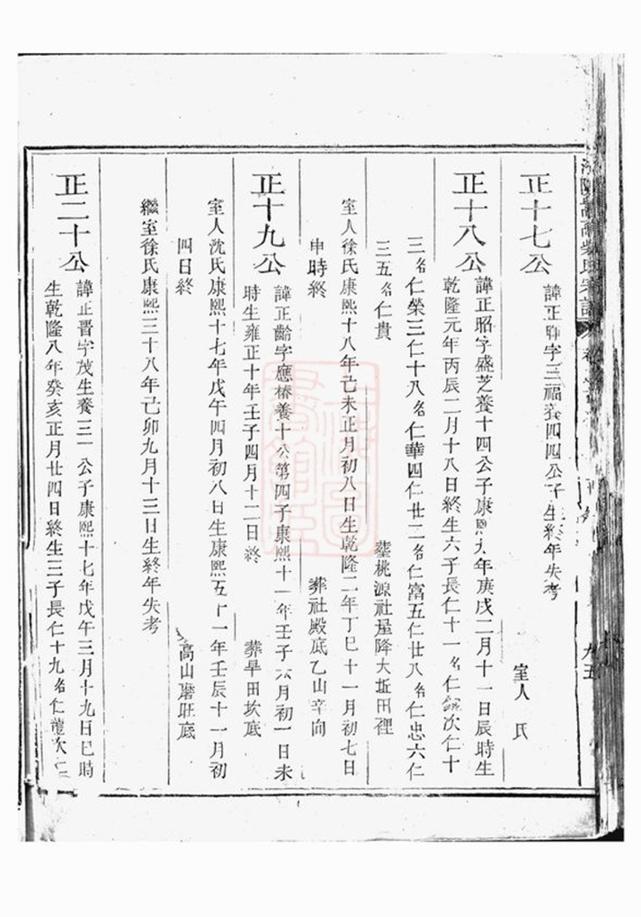 正十七公
諱正聯字三福養四四公子生終年失考
室人　氏
正十八公
諱正昭字盛芝養十四公子康熙九年庚戌二月十一日辰時生
乾隆元年丙辰二月十八日終生六子長仁十一名仁次仁十
三名仁榮三仁十八名仁華四仁廿二名仁富五仁廿八名仁忠六仁
三五名仁貴
葬桃源社屋降大坵田裡
室人徐氏康熙十八年己未正月初八日生乾隆二年丁巳十一月初七日
申時終
葬社殿底乙山辛向
正十九公
諱正齡字應椿養十公第四子康熙十一年壬子六月初一日未
時生雍正十年壬子四月十二日終
葬旱田坎底
室人沈氏康熙十七年戊午四月初八日生康熙五十一年壬辰十一月初
四日終
高山磨旺底
繼室徐氏康熙三十八年己卯九月十三日生終年失考
正二十公
諱正晋字茂生養三一公子康熙十七年戊午三月十九日巳時
生乾隆八年癸亥正月廿四日終生三子長仁十九名仁禮次仁三
氏宗譜
九五